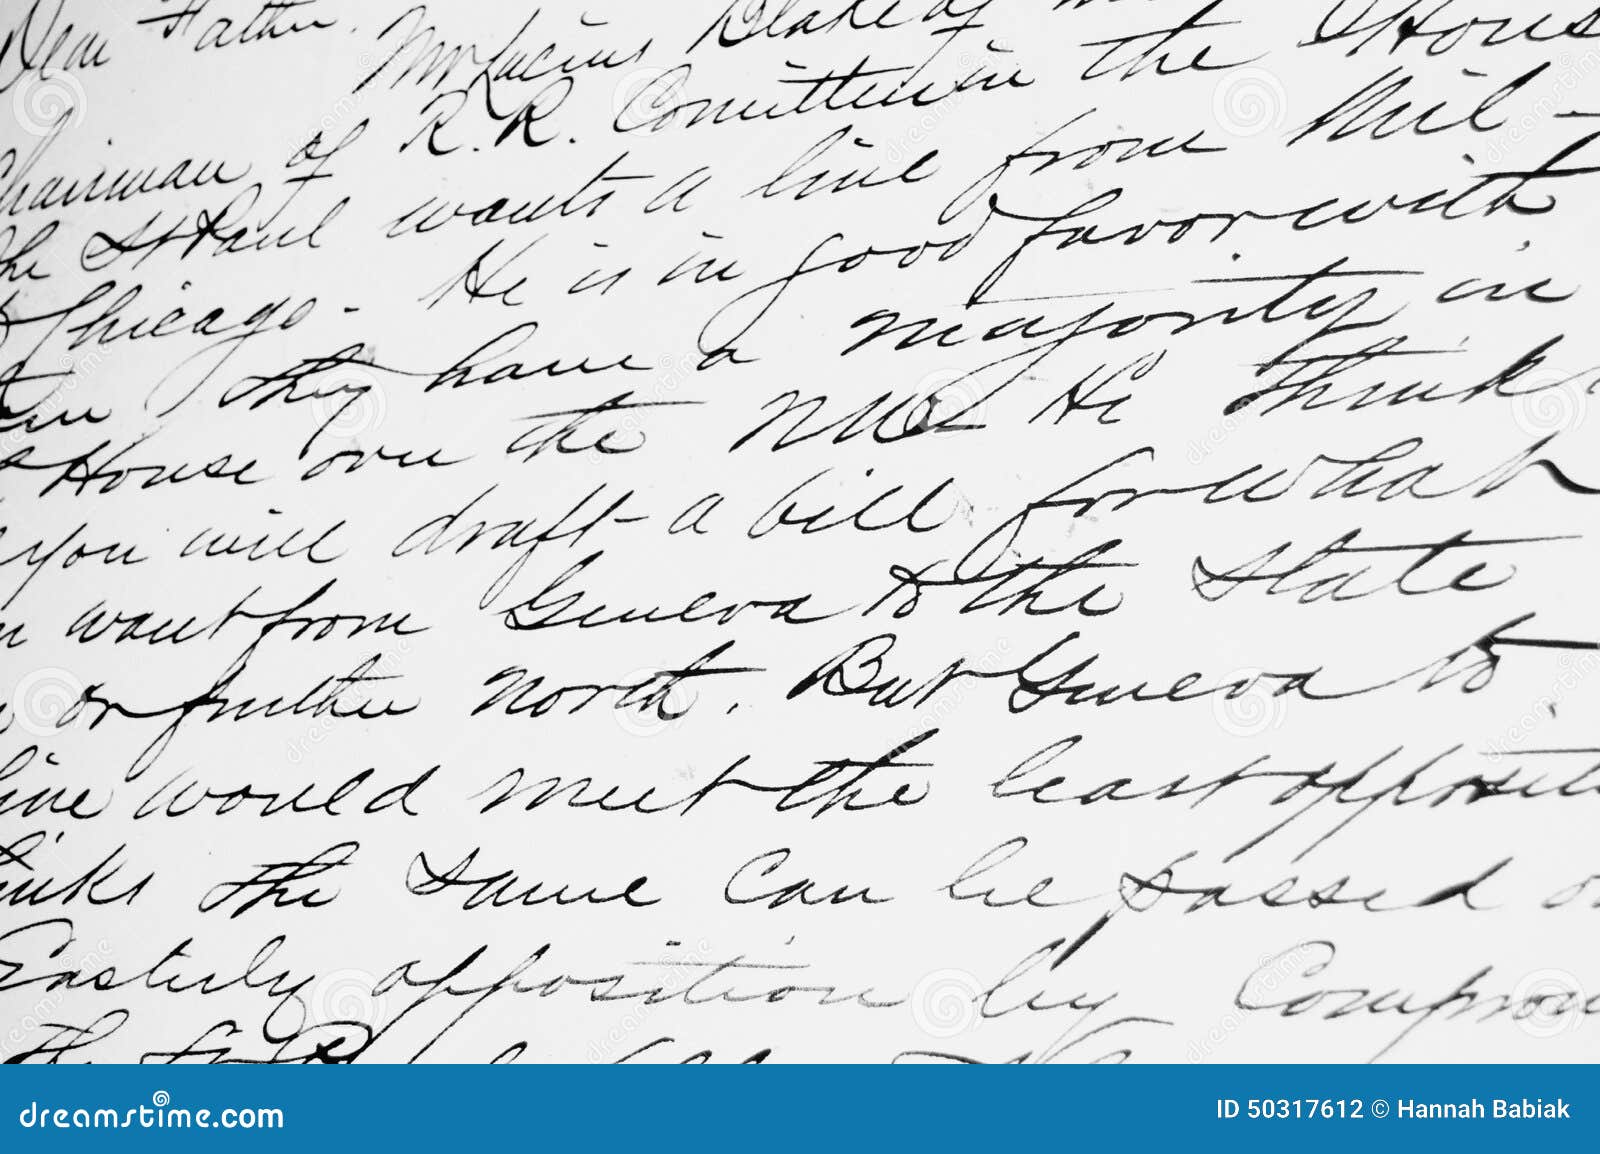 Dear Father.
Mr Lucius Blake of
Chairman of R.R. Comitte in the Hous
the St Paul wants a line from Mil-
Chicago - He is in good favor with
they have a majority in
House over the N.W. He thinks
you will draft a bill for what
want from Geneva to the State
or further north. But Geneva to
line would meet the least oppositi
inks the same can be passed o
Easterly opposition by Comprom
the St P
dreamstime.com
ID 50317612 © Hannah Babiak